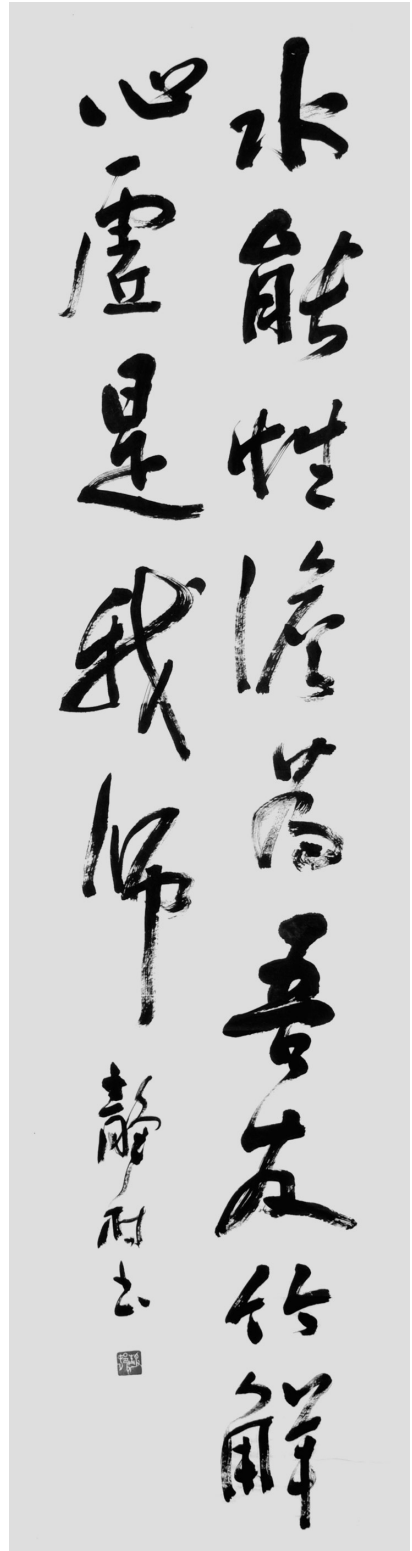 水能性澹為吾友竹解
心虛是我師
靜耐书